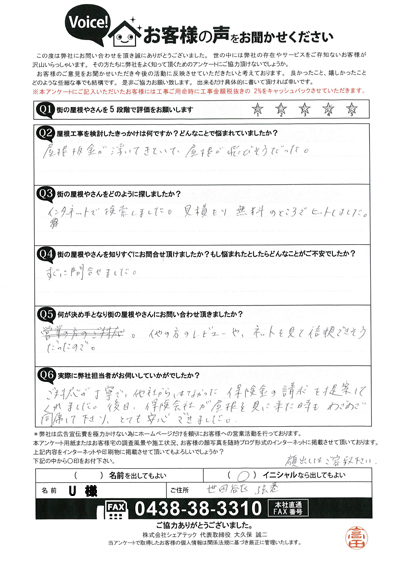 Voice!
お客様の声をお聞かせください
この度は弊社にお問い合わせを頂き誠にありがとうございました。 世の中には弊社の存在やサービスをご存知ないお客様が
沢山いらっしゃいます。 その方たちに弊社をよく知って頂くためのアンケートにご協力頂けないでしょうか。
お客様のご意見をお聞かせいただき今後の活動に反映させていただきたいと考えております。 良かったこと、嬉しかったこと
どのような些細な事でも結構です。 是非ご協力お願い致します。 出来るだけ具体的に書いて頂ければ幸いです。
※本アンケートにご記入いただいたお客様には工事ご用命時に工事金額税抜きの 2%をキャッシュバックさせていただきます。
Q1 街の屋根やさんを5段階で評価をお願いします
☆ ☆ ☆ ☆ ☆
Q2 屋根工事を検討したきっかけは何ですか？どんなことで悩まれていましたか？
屋根板金が浮いてきていて 屋根が飛びそうだった。
Q3 街の屋根やさんをどのように探しましたか？
インターネットで検索しました。 見積もり 無料のところでヒットしました。
Q4 街の屋根やさんを知りすぐにお問合せ頂けましたか？もし悩まれたとしたらどんなことがご不安でしたか？
すぐに問合せました。
Q5 何が決め手となり街の屋根やさんにお問い合わせ頂きましたか？
他の方のレビューや、ネットを見て信頼できそう
だったので。
Q6 実際に弊社担当者がお伺いしていかがでしたか？
ご対応が丁寧で、他社からはなかった 保険金の請求を提案して
くれました。 後日、保険会社が屋根を見に来た時も わざわざ
同席して下さり、とても安心できました。
＊弊社は広告宣伝費を極力かけない為にホームページだけを頼りにお客様への営業活動を行っております。
本アンケート用紙またはお客様での調査風景や施工状況、お客様の顔写真を随時ブログ形式のインターネットに掲載させて頂いております。
上記内容をインターネットや印刷物に掲載させて頂いてもよろしいでしょうか？
下記の中から〇印をお付け下さい。
顔出しはご容赦下さい。
（　）名前を出してもよい
（〇）イニシャルなら出してもよい
名前 U 様 ご住所 世田谷区
FAX 0438-38-3310 本社直通 FAX番号
ご協力ありがとうございました。
株式会社シェアテック 代表取締役 大久保 誠二
当アンケートで取得したお客様の個人情報は関係法規に基づき厳正に管理いたします。